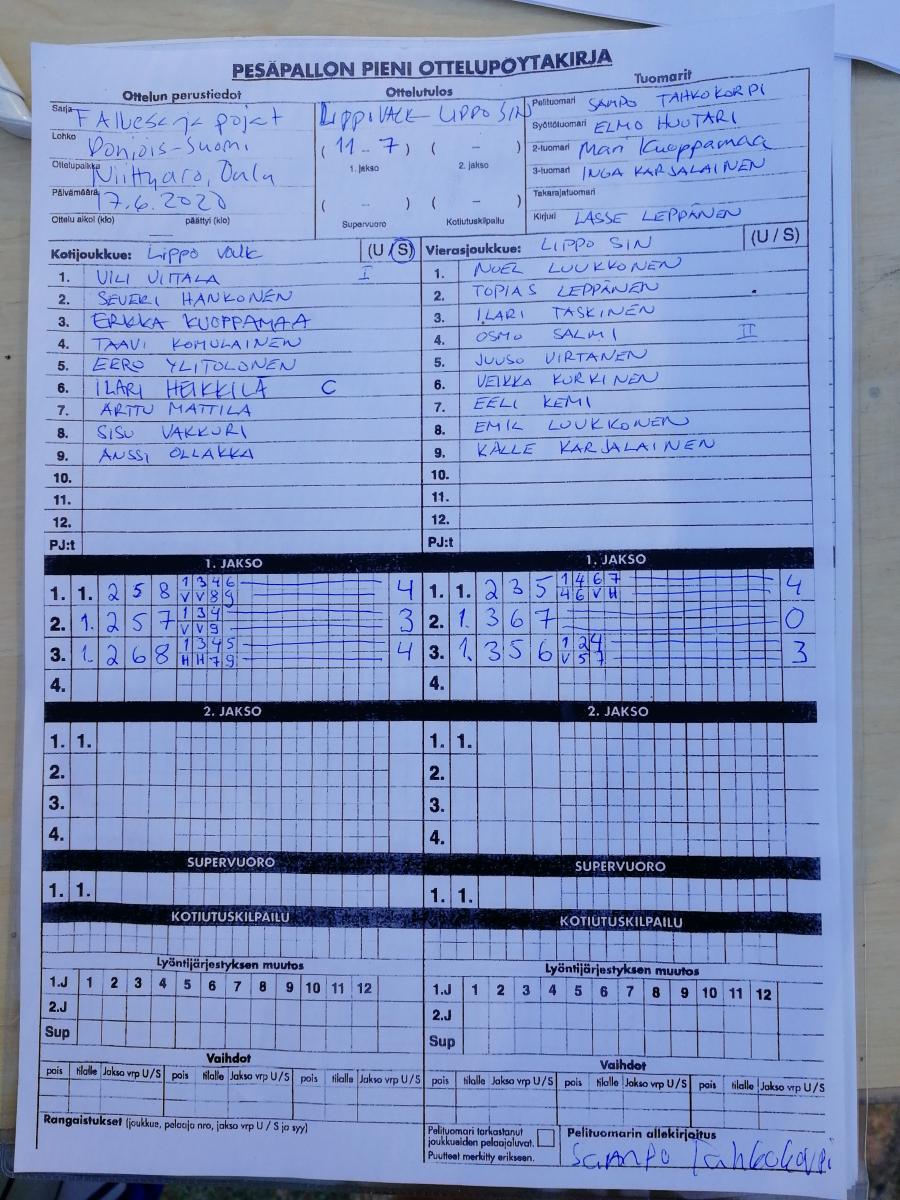 PESÄPALLON PIENI OTTELUPÖYTÄKIRJA
Ottelun perustiedot
Sarja F Aluesarja pojat
Lohko Pohjois-Suomi
Ottelupaikka Niittyaro, Oulu
Päivämäärä 17.6.2020
Ottelu alkoi (klo) päättyi (klo)
Ottelutulos
LIPPO VALK - LIPPO SIN
( 11 - 7 ) ( - )
1. jakso 2. jakso
( - ) ( - )
Supervuoro Kotiutuskilpailu
Tuomarit
Pelituomari SAMPO TAHKOKORPI
Syöttötuomari ELMO HUUTARI
2-tuomari Mari Kuoppamaa
3-tuomari INGA KARJALAINEN
Takarajatuomari
Kirjuri LASSE LEPPÄNEN
Kotijoukkue: LIPPO VALK (U / S)
1. VILI VIITALA I
2. SEVERI HANKONEN
3. ERKKA KUOPPAMAA
4. TAAVI KOMULAINEN
5. EERO YLITOLONEN
6. ILARI HEIKKILÄ C
7. ARTTU MATTILA
8. SISU VAKKURI
9. ANSSI OLLAKKA
10.
11.
12.
PJ:t
Vierasjoukkue: LIPPO SIN (U / S)
1. NOEL LUUKKONEN
2. TOPIAS LEPPÄNEN
3. ILARI TASKINEN
4. OSMO SALMI II
5. JUUSO VIRTANEN
6. VEIKKA KURKINEN
7. EELI KEMI
8. EMIL LUUKKONEN
9. KALLE KARJALAINEN
10.
11.
12.
1. JAKSO
1. 1. 2 5 8 1 3 4 6 4
V V 8 9
2. 1. 2 5 7 1 3 4 3
V V 9
3. 1. 2 6 8 1 3 4 5 4
H H 7 9
4.
1. JAKSO
1. 1. 2 3 5 1 4 6 7 4
4 6 V H
2. 1. 3 6 7 0
3. 1. 3 5 6 1 2 4 3
V 5 7
4.
2. JAKSO
1. 1.
2.
3.
4.
2. JAKSO
1. 1.
2.
3.
4.
SUPERVUORO
1. 1.
SUPERVUORO
1. 1.
KOTIUTUSKILPAILU
KOTIUTUSKILPAILU
Lyöntijärjestyksen muutos
1.J 1 2 3 4 5 6 7 8 9 10 11 12
2.J
Sup
Lyöntijärjestyksen muutos
1.J 1 2 3 4 5 6 7 8 9 10 11 12
2.J
Sup
Vaihdot
pois tilalle Jakso vrp U/S pois tilalle Jakso vrp U/S pois tilalle Jakso vrp U/S
Vaihdot
pois tilalle Jakso vrp U/S pois tilalle Jakso vrp U/S pois tilalle Jakso vrp U/S
Rangaistukset (joukkue, pelaaja nro, jakso vrp U / S ja syy)
Pelituomari tarkastanut
joukkueiden pelaajaluvat.
Puutteet merkitty erikseen.
Pelituomarin allekirjoitus
Sampo Tahkokorpi